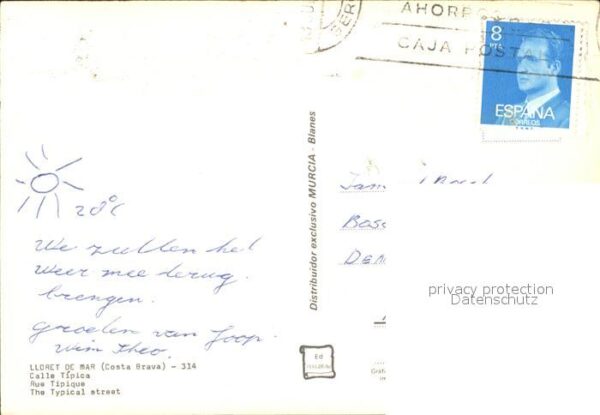 AHORRO
CAJA POSTAL
8
PTA
ESPAÑA
CORREOS
28°C
We zullen het
weer mee terug.
brengen.
groeten van Joop.
Wim Theo.
LLORET DE MAR (Costa Brava) - 314
Calle Típica
Rue Tipique
The Typical street
Distribuidor exclusivo MURCIA - Blanes
Ed
privacy protection
Datenschutz